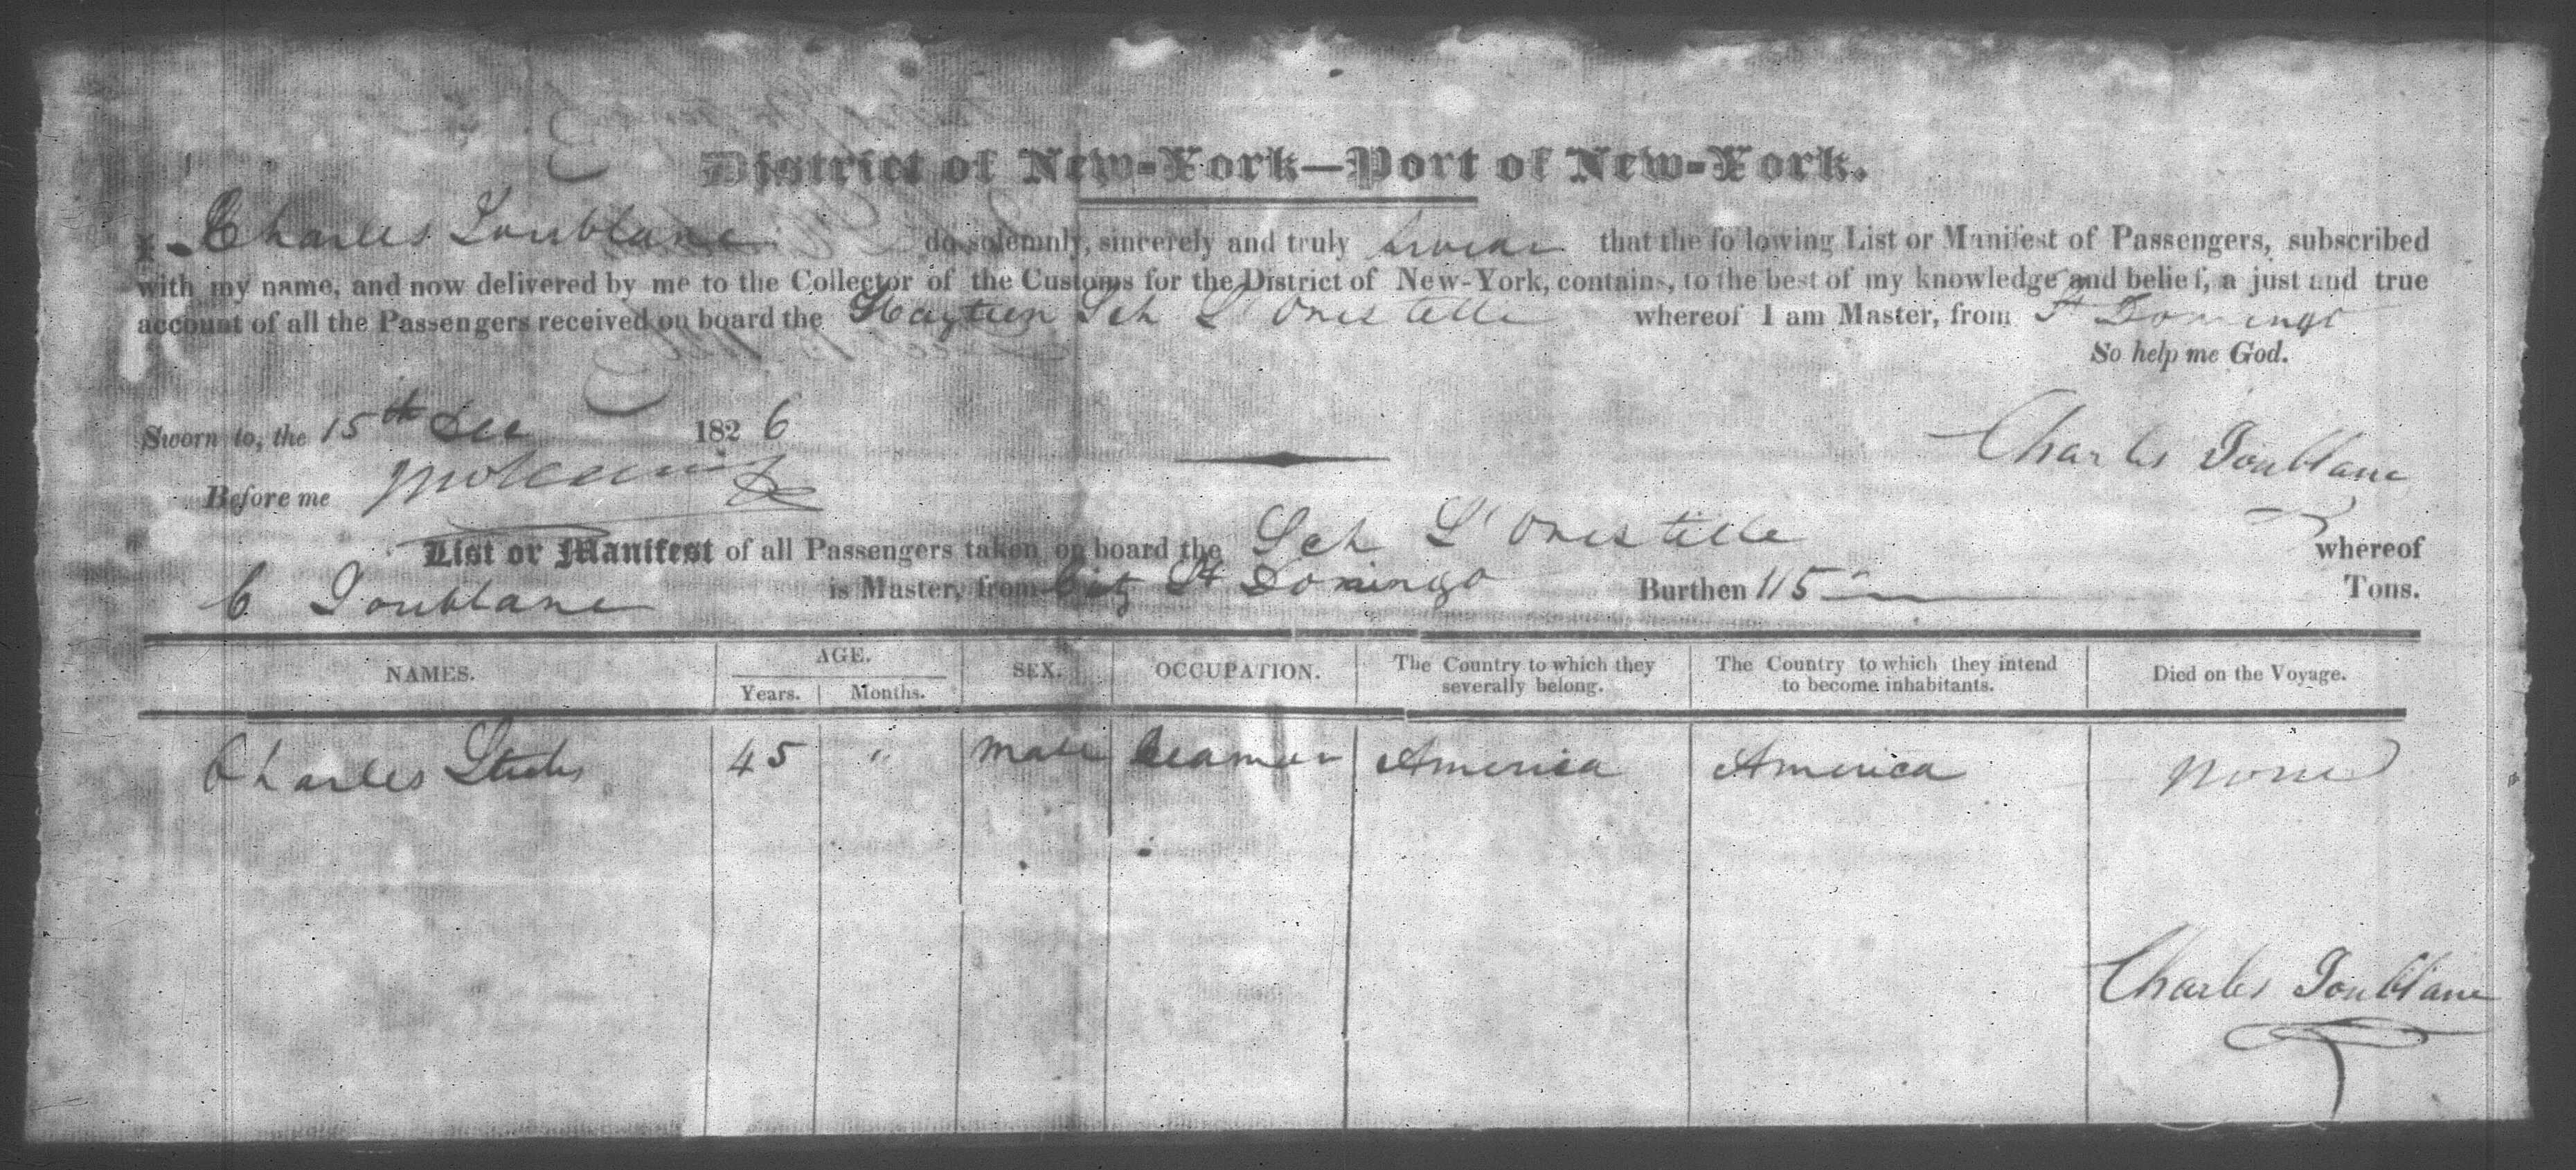 District of New-York—Port of New-York.
I Charles Toublanc do solemnly, sincerely and truly swear that the following List or Manifest of Passengers, subscribed
with my name, and now delivered by me to the Collector of the Customs for the District of New-York, contains, to the best of my knowledge and belief, a just and true
account of all the Passengers received on board the Haytien Sch L'Orestille whereof I am Master, from St Domingo
So help me God.
Sworn to, the 15th Dec 1826
Charles Toublanc
Before me
List or Manifest of all Passengers taken on board the Sch L'Orestille whereof
C Toublanc is Master, from City St Domingo Burthen 115 Tons.
NAMES. AGE. SEX. OCCUPATION. The Country to which they severally belong. The Country to which they intend to become inhabitants. Died on the Voyage.
Years. Months.
Charles 45 " Male Seaman America America None
Charles Toublanc